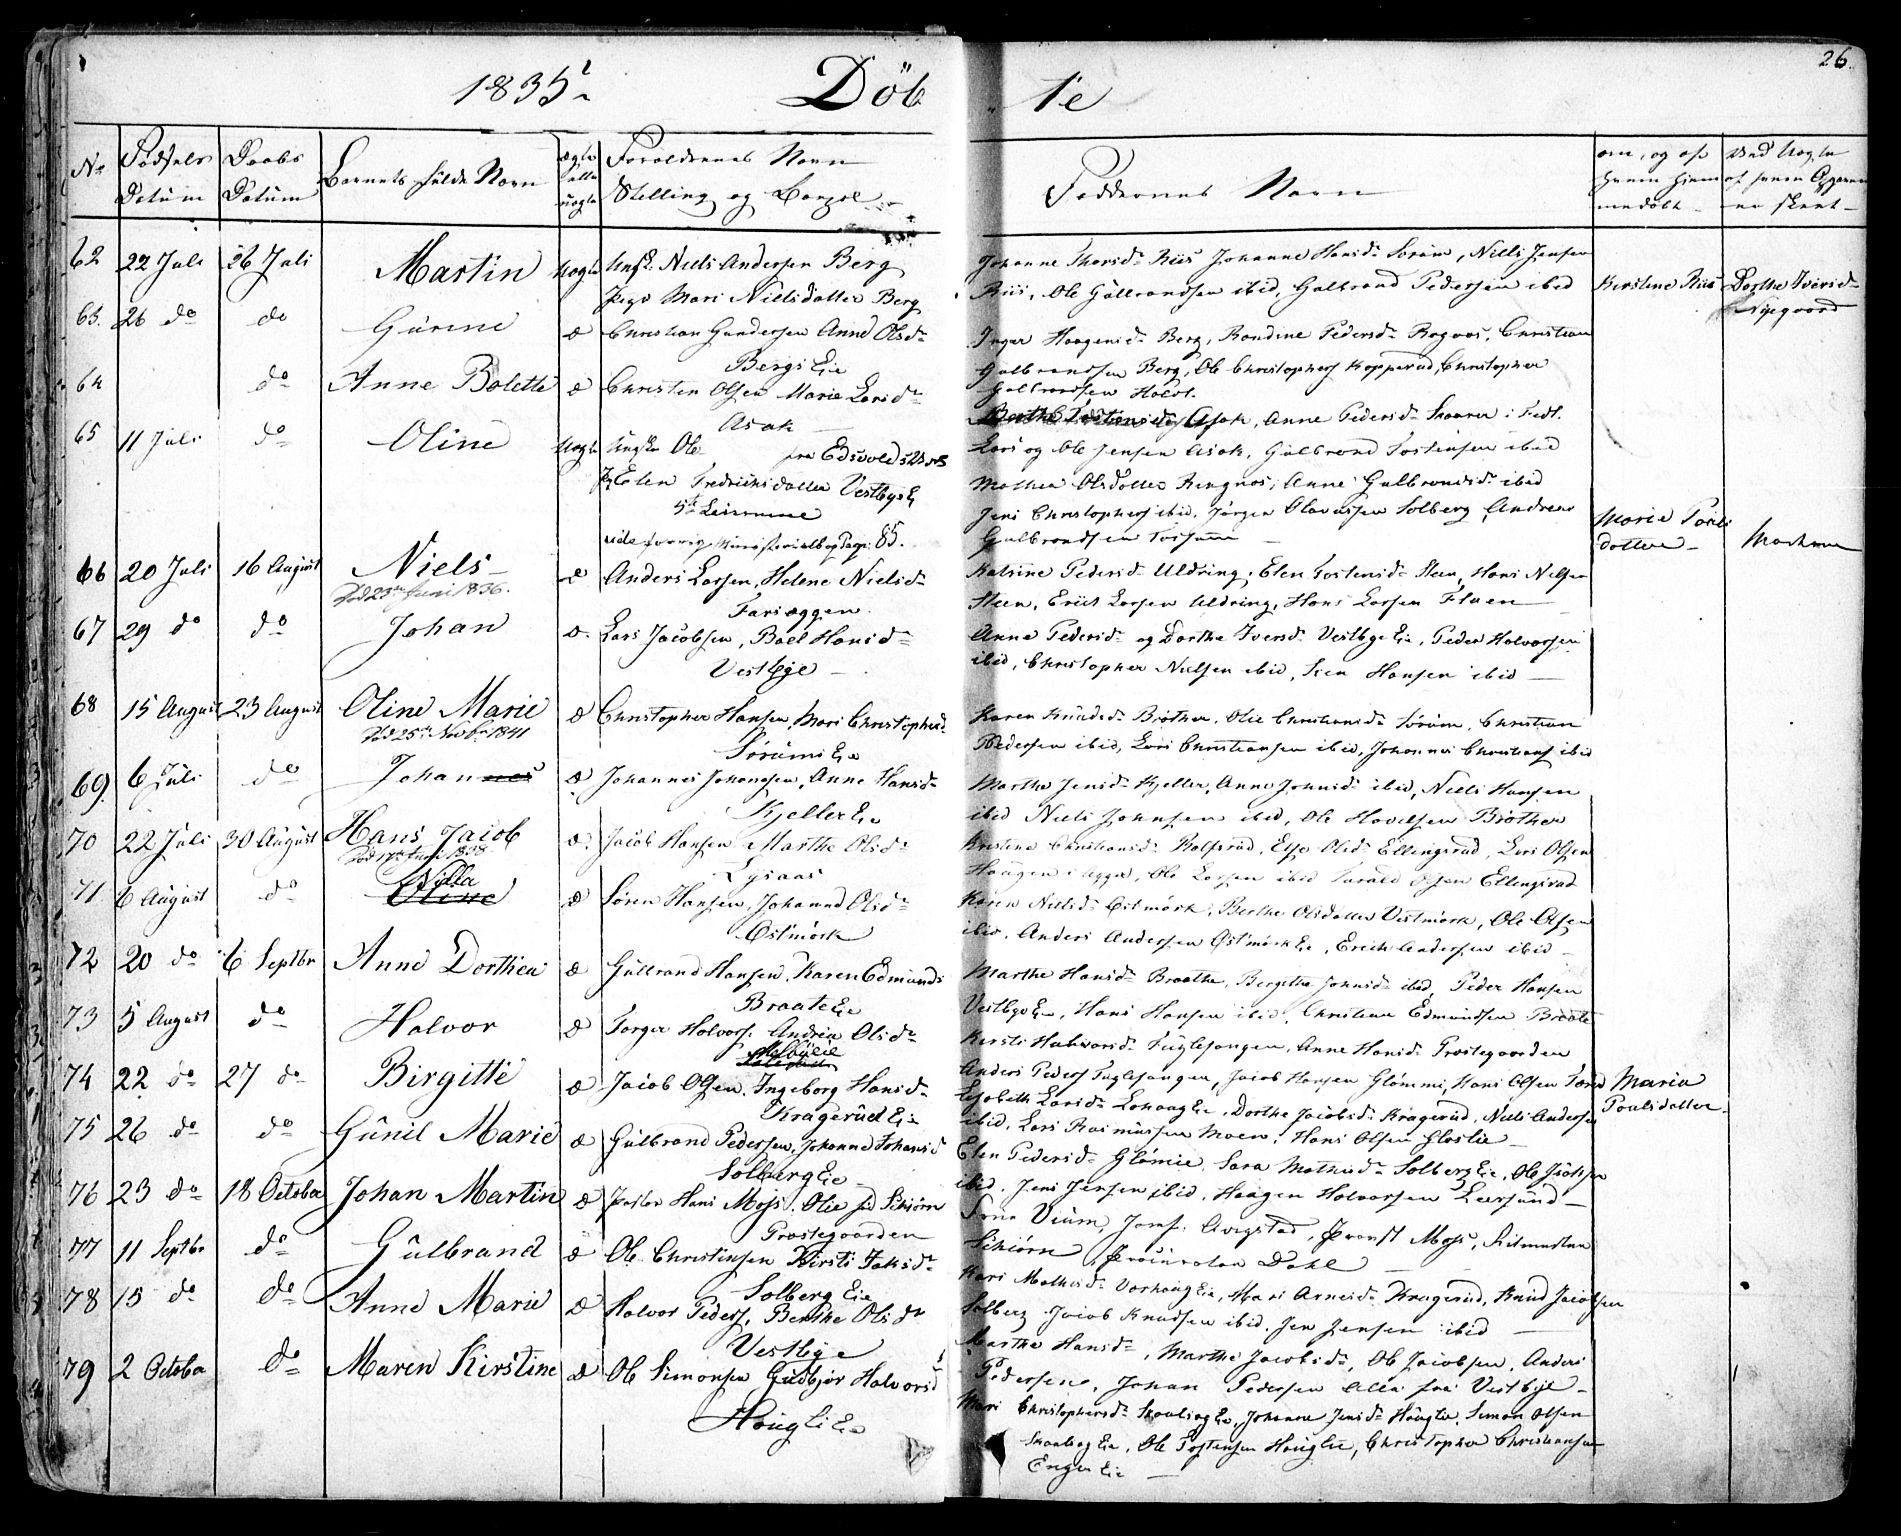 26
1835
Döb te
No
Fødsels Datum
Daabs Datum
Barnets fulde Navn
Foreldrenes Navn
Stilling og
Faddernes Navn
om, og af hvem hjemmedøbt
62 22 Juli 26 Juli Martin Uægte Ungk. Niels Andersen Berg
Pige Mari Nielsdatter Berg
Riis, Ole Gulbrandsen ibid, Gulbrand Pedersen ibid Kirstine Riis Dorthe Iversd.
63. 26 do do Gurine æ Christian Gundersen Anne Olsd.
Bergs Eie
Inger Haagensd. Berg, Randine Pedersd. Christian
Gulbrandsen Berg, Ole Christophers Kopperud, Christopher
Gulbrandsen Holst.
64 do Anne Bolette æ Christen Olsen Marie Larsd.
Asak
Asak, Anne Pedersd.
Lars og Ole Jensen Asak, Gulbrand Tostensen ibid
65 11 Juli do Oline Uægte Ungk. Ole fra Edsvolds
P. Elen Fredriksdatter Vestbye E.
Mathea Olsdatter Anne Gulbrandsd. ibid
Jens Christophers ibid, Jørgen Olavesen Solberg, Andreas
Gulbrandsen
Marie Poulsdatter
85.
66 20 Juli 16 August Niels
Død 23de Juni 1836.
æ Anders Larsen, Helene Nielsd.
Farseggen
Katrine Pedersd. Uldring, Elen Tostensd. Steen, Hans Nilsen
Steen, Erik Larsen Uldring, Hans Larsen
67 29 do do Johan æ. Lars Jacobsen, Boel Hansd.
Vestbye
Anne Pedersd. og Dorthe Iversd. Vestbye Eie, Peder Halvorsen
ibid, Christopher Nielsen ibid, Hansen ibid
68 15 August 23 August Oline Marie
Død 25de Novbr 1841
æ Christopher Hansen, Mari Christophersd.
Sørums Eie
Karen Knudsd. Brøther, Olie Christiansd. Sørum, Christian
Pedersen ibid, Lars Christiansen ibid, Johannes Christians ibid
69. 6 Juli do Johannes æ Johannes Johansen, Anne Hansd.
Kjeller Eie
Marthe Jensd. Kjeller, Anne Johnsd. ibid, Niels Hansen
ibid Niels Johnsen ibid, Ole Hovelsen Brøther
70 22 Juli 30 August Hans Jacob
Juni 1838
æ. Jacob Hansen Marthe Olsd.
Lysaas
Kristine Christiansd. Rolfsrud, Olsd. Ellingsrud, Lars Olsen
Haugen, Ole Larsen ibid Olsen Ellingsrud
71 6 August do Nilla
Oline
æ Søren Hansen, Johanne Olsd.
Østmørk
Karen Nielsd. Østmørk, Berthe Olsdatter Vestmørk, Ole Olsen
ibid, Anders Andersen Østmørk Eie, Erich Andersen ibid
72 20 do 6 Septbr Anne Dorthea æ Gulbrand Hansen, Karen Edmunds
Braate Eie
Marthe Hansd. Braathe, Bergithe Johnsd. ibid, Peder Hansen
Vestbye Eie, Hans Hansen ibid, Christian Edmundsen Braate
73 5 August do Halvor æ Torger Halvors. Andrea Olsd.
Kirsti Halvorsd. Fuglesangen, Anne Hansd. Prostegaarden
Anders Peders Fuglesangen, Jacob Hansen Glömmi, Hans Olsen
74 22 do 27 do Birgitte æ Jacob Olsen, Ingeborg Hansd.
Kragerud Eie
Lisabeth Larsd. Eie, Dorthe Jacobsd. Kragerud, Niels Andersen
ibid, Lars Rasmussen Moen, Hans Olsen
Maria
Poulsdatter
75 26 do do Gunil Marie æ Gulbrand Pedersen, Johanne Johansd
Solberg Eie
Elen Pedersd. Glömmie, Sara Mathisd. Solberg Eie, Ole
ibid, Jens Jensen ibid, Haagen Halvorsen Leersund
76 23 do 18 October Johan Martin æ Pastor Hans Moss, Olie fød Schiørn
Prostegaarden
Frue Vium, Jomf. Avigstad, Provst Moss,
Schiörn, Procurator Dahl
77 11 Septbr do Gulbrand æ Ole Christensen Kirsti Jaksd.
Solberg Eie
Kari Mathisd. Eie, Mari Arnesd. Kragerud, Knud Jacobsen
Solberg Jacob Knudsen ibid, Jen Jensen ibid
78 15 do do Anne Marie æ Halvor Peders, Berthe Olsd.
Vestbye
Marthe Hansd., Marthe Jacobsd., Ole Jacobsen, Anders
Pedersen, Johan Pedersen alle fra Vestbye
79 2 October do Maren Kirstine æ Ole Simonsen Gudbjør Halvorsd.
Hougli Eie
Mari Christophersd. Eie, Johanne Jensd. Houglie, Simon Olsen
Eie, Ole Tostensen Houglie, Christopher Christiansen
Enger Eie